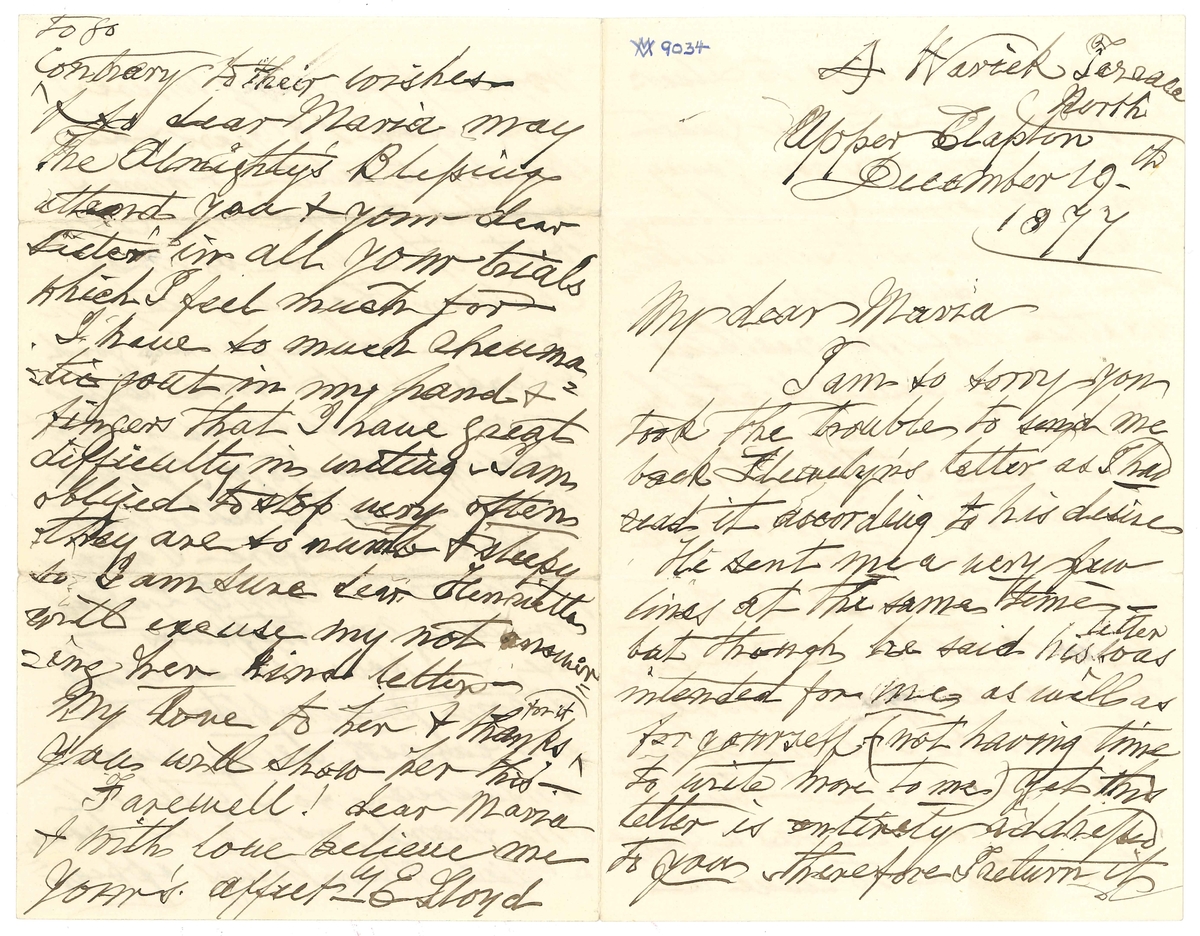 9034
4 Warick Terrace
North
Upper Clapton
December 19th
1877
My dear Maria
I am so sorry you
took the trouble to send me
back Llewelyn's letter as I had
read it according to his desire
He sent me a very few
lines at the same time
but though he said his letter was
intended for me as well as
for yourself (not having time
to write more to me) yet this
letter is entirely addressed
to you therefore I return it
to go
contrary to their wishes
& so dear Maria may
The Almighty's Blessing
attend you & your dear
sister in all your trials
which I feel much for
I have so much rheuma
=tic gout in my hand &
fingers that I have great
difficulty in writing & am
obliged to stop very often
they are so numb & sleepy
so I am sure dear Henrietta
will excuse my not answer=
=ing her kind letter
My love to her & thanks for it
you will show her this—
Farewell! dear Maria
& with love believe me
Your's affectly E Lloyd